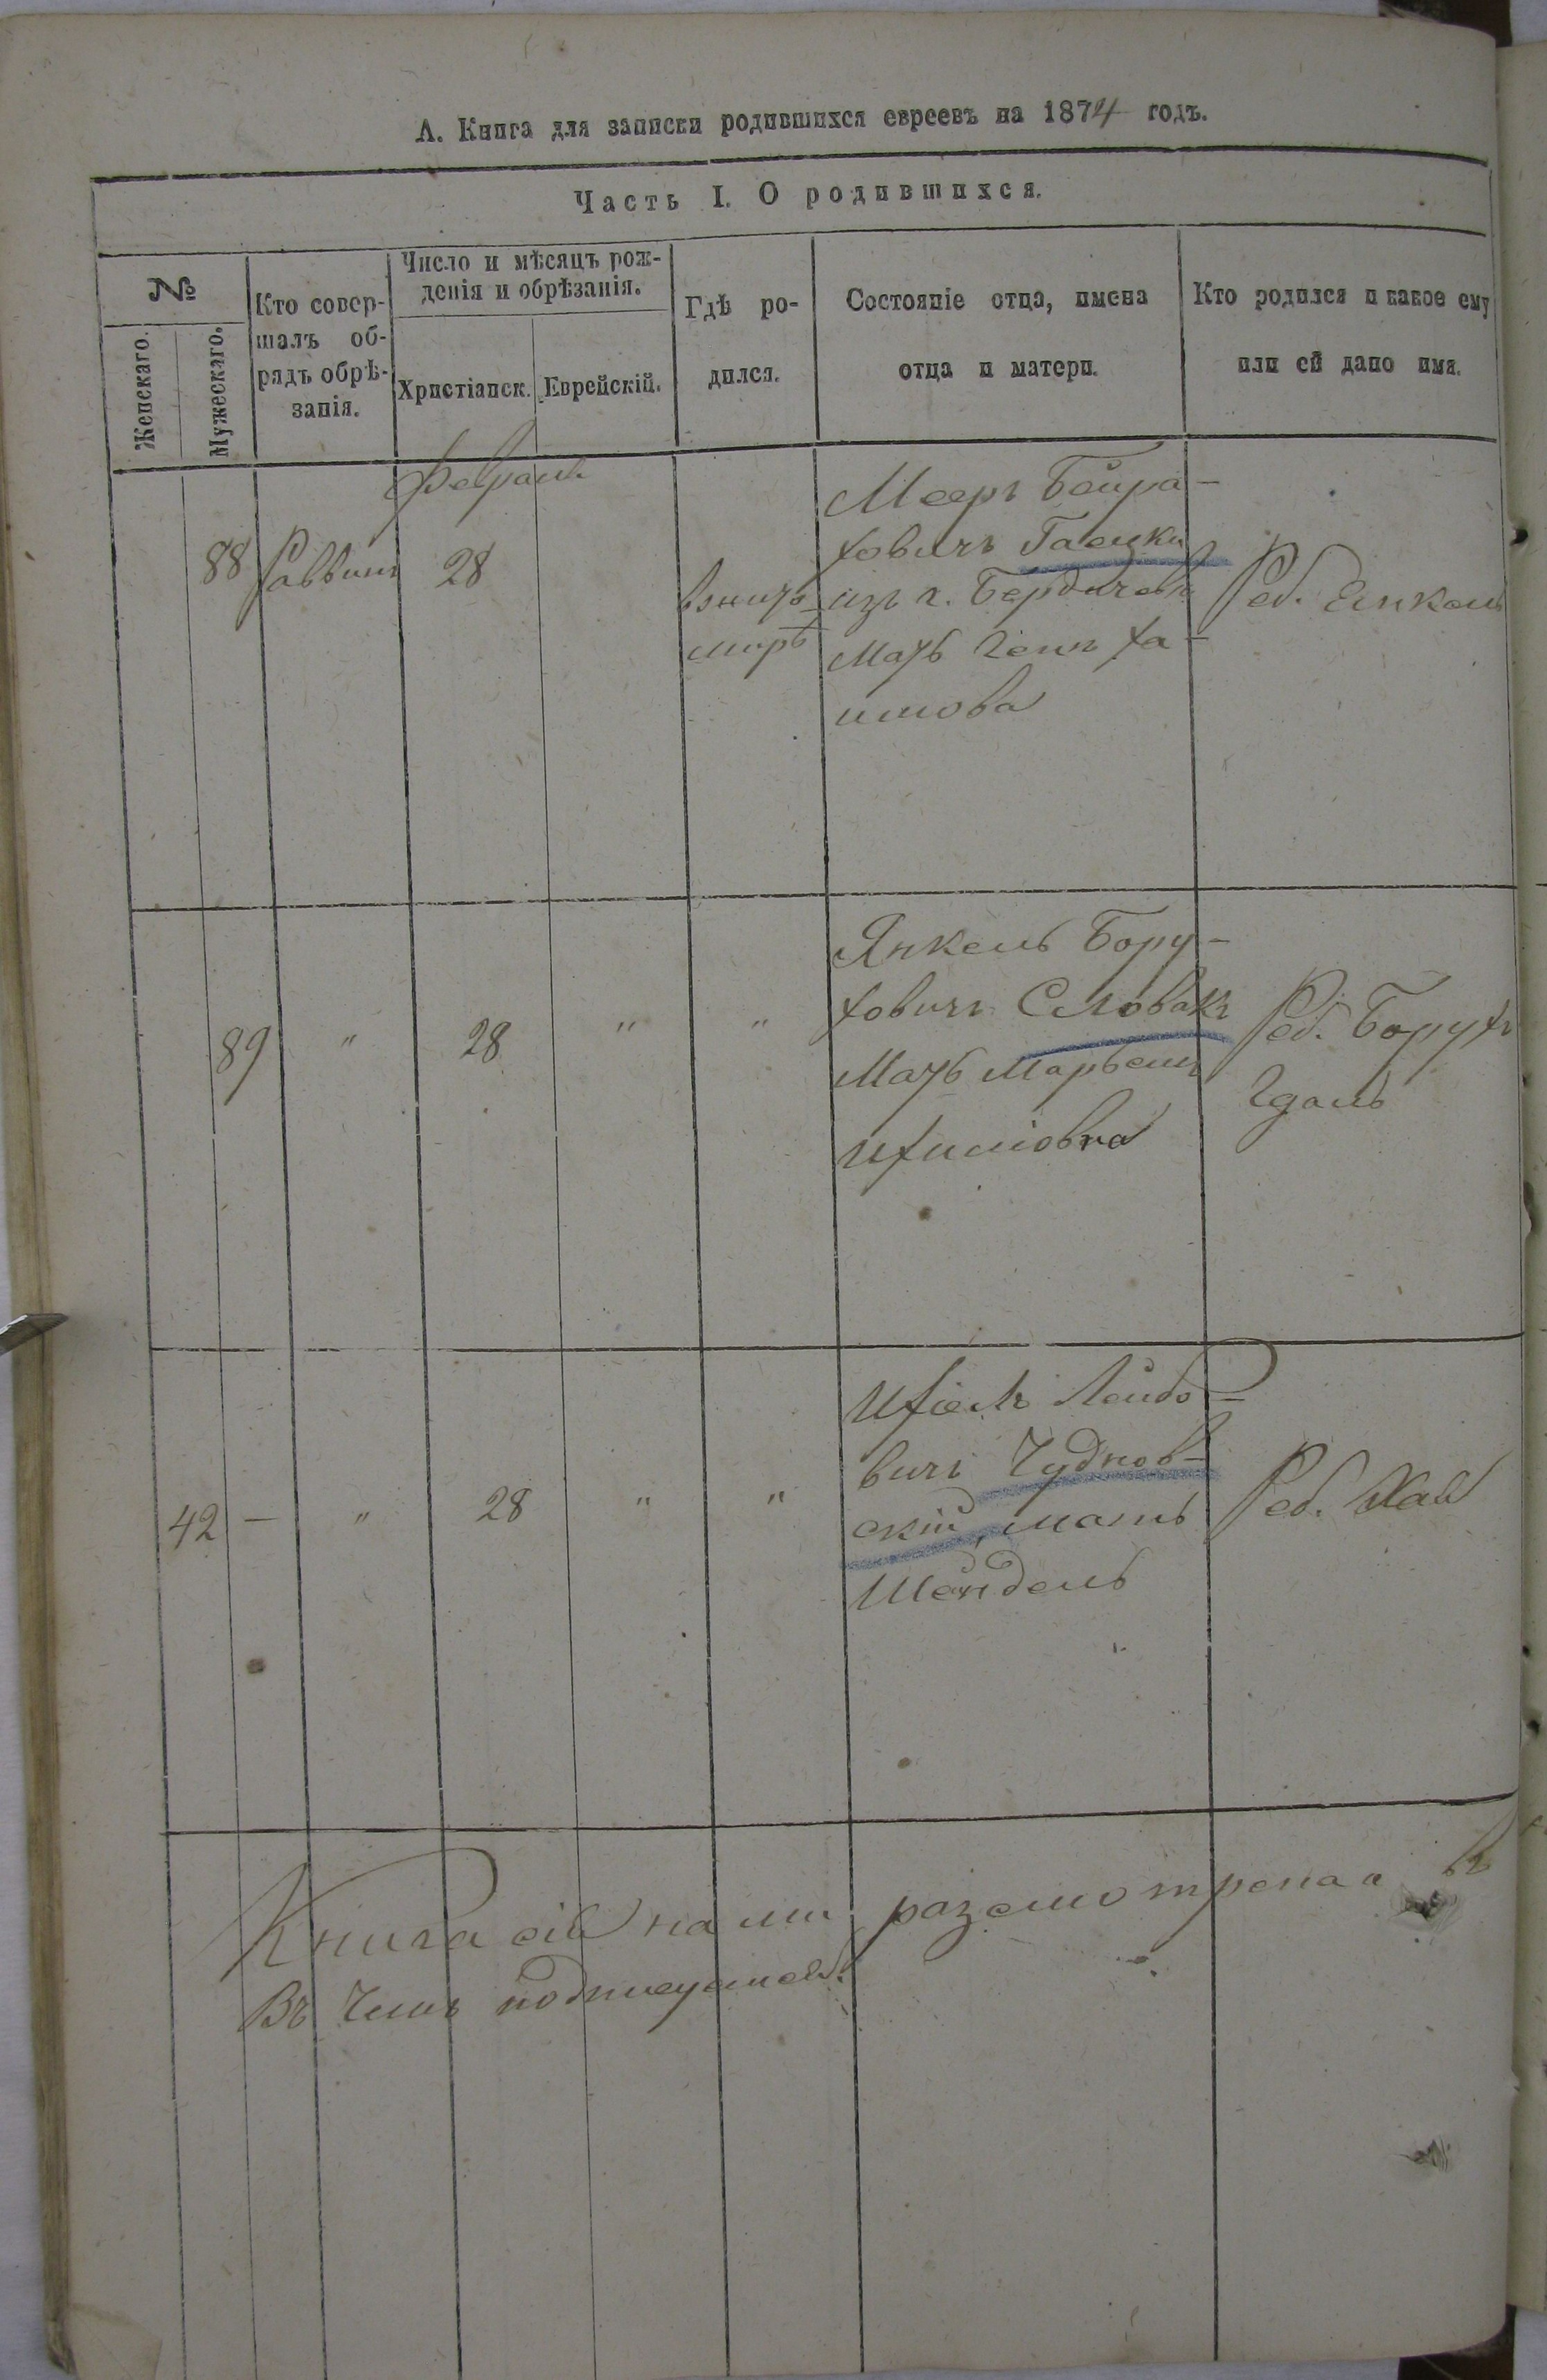 А. Книга для записки родившихся евреевъ на 1874 годъ.
Часть I. О родившихся.
№
Женскаго.
Мужескаго.
Кто совер-
шалъ об-
рядъ обрѣ-
занія.
Число и мѣсяцъ рож-
денія и обрѣзанія.
Христіанск.
Еврейскій.
Гдѣ ро-
дился.
Состояніе отца, имена
отца и матери.
Кто родился и какое ему
или ей дано имя.
Февраль
88
Раввинъ
28
мирѣ
Мееръ
ховичъ Гаецки
из г. Бердичева
Мать Ха-
имова
Реб.
89
"
28
"
"
Янкель Бору-
ховичъ Словакъ
Мать
Ихиліовна
Реб. Борухъ
42
—
"
28
"
"
Ихіелъ Лейбо-
вичъ Чуднов-
скій, мать
Шендель
Реб. Хая
Книга сія нами разсмотрена
Въ чемъ подписуемся.